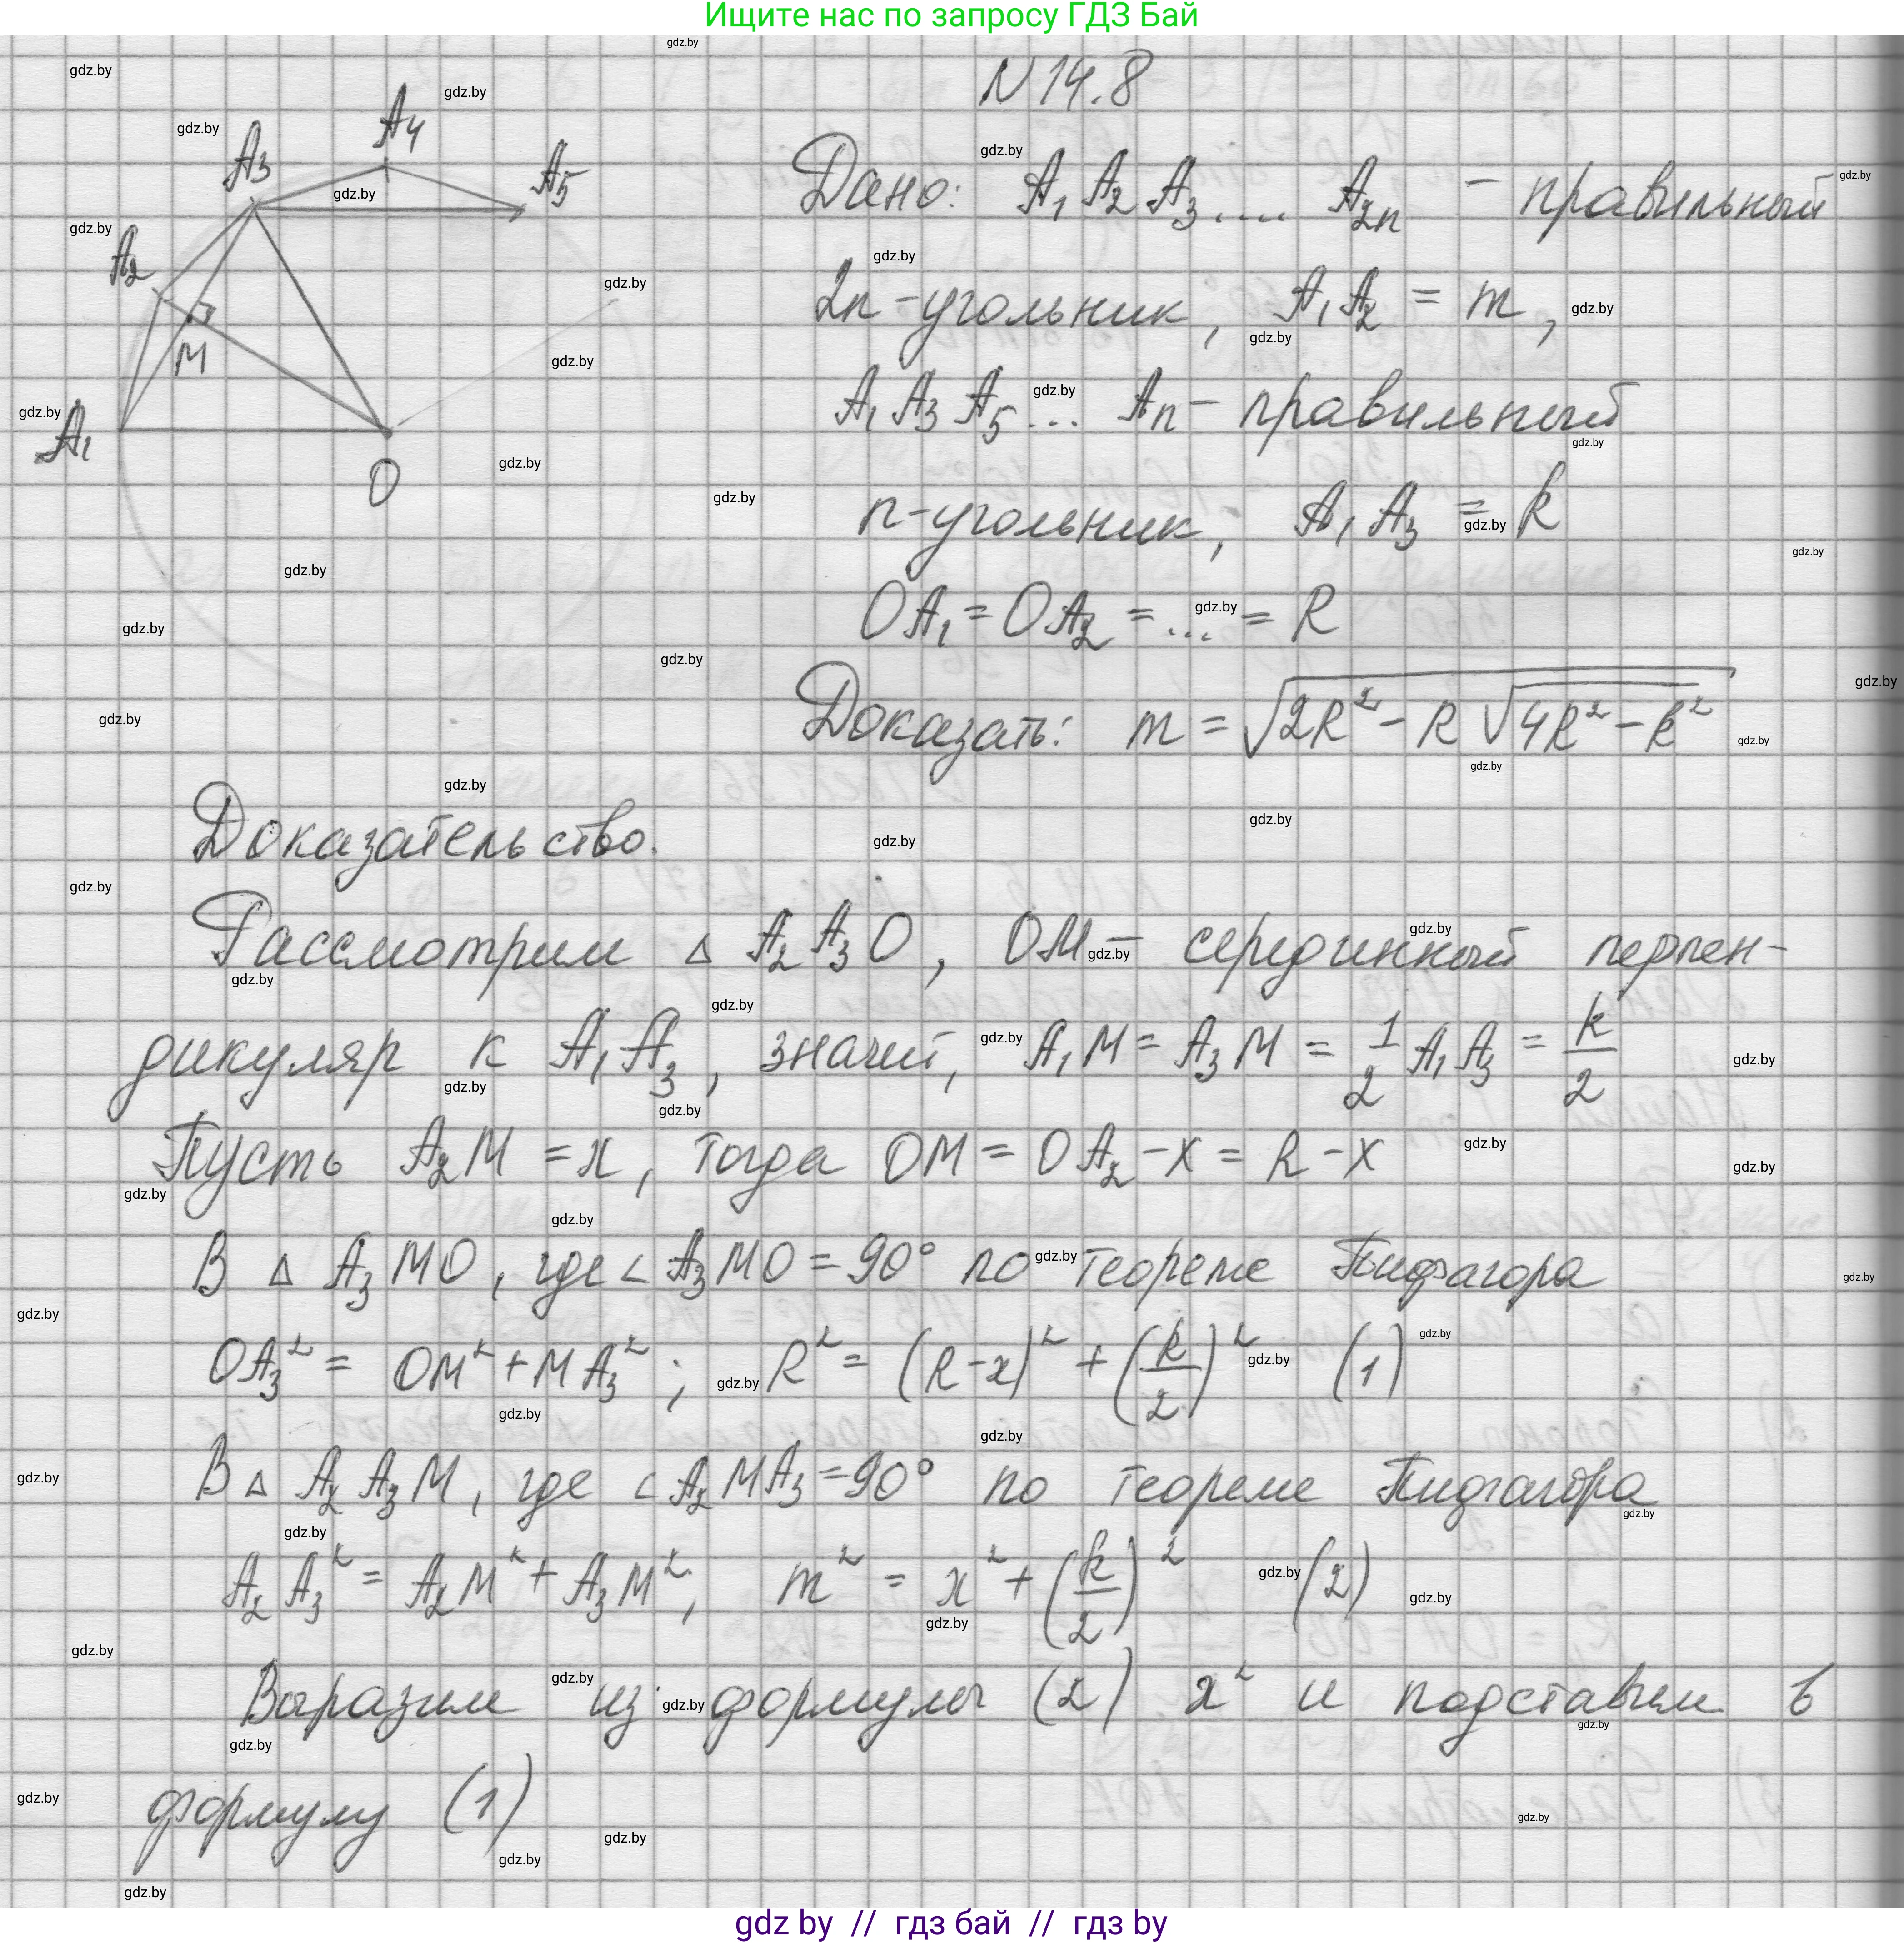 Ищите нас по запросу ГДЗ Бай
N 14.8
A₃ A₄ A₅
A₂
M
A₁
O
Дано: A₁ A₂ A₃.... A₂ₙ - правильный
2n-угольник, A₁A₂ = m,
A₁ A₃ A₅... Aₙ - правильный
n-угольник, A₁A₃ = k
OA₁ = OA₂ = ... = R
Доказать: m = √(2R² - R √(4R² - k²))
Доказательство.
Рассмотрим △ A₂A₃O, OM - серединный перпен-
дикуляр к A₁A₃, значит, A₁M = A₃M = 1/2 A₁A₃ = k/2
Пусть A₂M = x, тогда OM = OA₂ - x = R - x
В △ A₃MO, где ∠A₃MO = 90° по теореме Пифагора
OA₃² = OM² + MA₃²; R² = (R-x)² + (k/2)² (1)
В △ A₂A₃M, где ∠A₂MA₃ = 90° по теореме Пифагора
A₂A₃² = A₂M² + A₃M², m² = x² + (k/2)² (2)
Выразим из формулы (2) x² и подставим в
формулу (1)
gdz by // гдз бай // гдз by